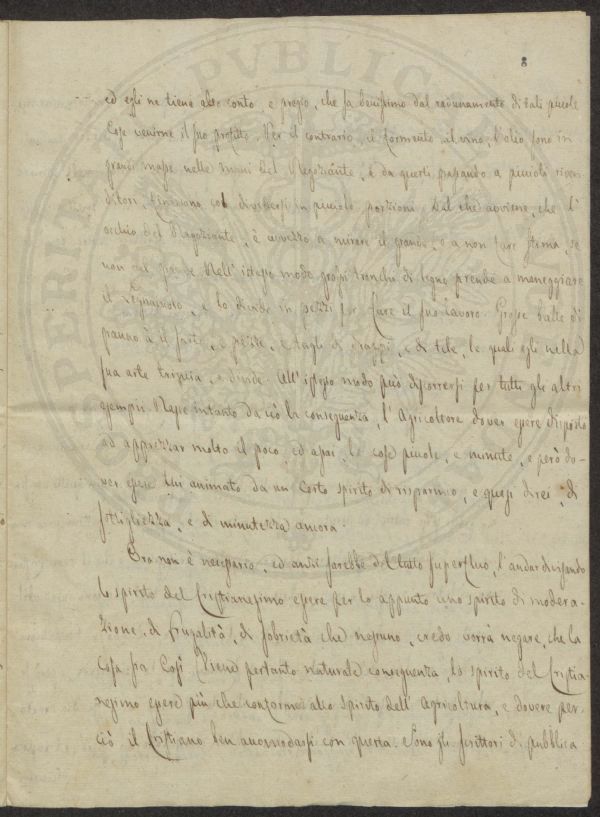 8
ed egli ne tiene alto conto, e pregio, che sa benissimo dal radunamento di tali piccole
Cose venirne il suo profitto. Per il contrario, il formento, il vino, l'olio sono in
grandi masse nelle mani del Negoziante, e da questi passando a piccioli riven-
ditori, vengono, col dividersi in piccole porzioni. Dal che avviene, che l'
occhio del Negoziante, è avvezzo a mirare il grande, e a non fare stima, se
non del grande. Nell'istesso modo grossi tronchi di legno prende a maneggiare
il Legnajuolo, e lo divide in pezzi per fare il suo lavoro. Grosse balle di
panno à il Sarto, e pezze, e tagli di drappi, e di tele, le quali egli nella
sua arte trincia, e divide. All'istesso modo può discorrersi per tutti gli altri
esempii. Nasce intanto da ciò la conseguenza, l'Agricoltore dover essere disposto
ad apprezzar molto il poco, ed assai le cose piccole, e minute, e però do-
ver essere lui animato da un certo spirito di risparmio, e quasi direi, di
sottigliezza, e di minutezza ancora.
Ora non è necessario, ed anzi sarebbe del tutto superfluo, l'andar divisando
lo spirito del Cristianesimo essere per lo appunto uno spirito di modera-
zione, di frugalità, di sobrietà che nessuno, credo vorrà negare, che la
Cosa sia Così. Viene pertanto naturale conseguenza, lo spirito del Cristia-
nesimo essere più che conforme allo spirito dell'Agricoltura, e dovere per-
ciò il Cristiano ben accomodarsi con questa. Sono gli scrittori di pubblica